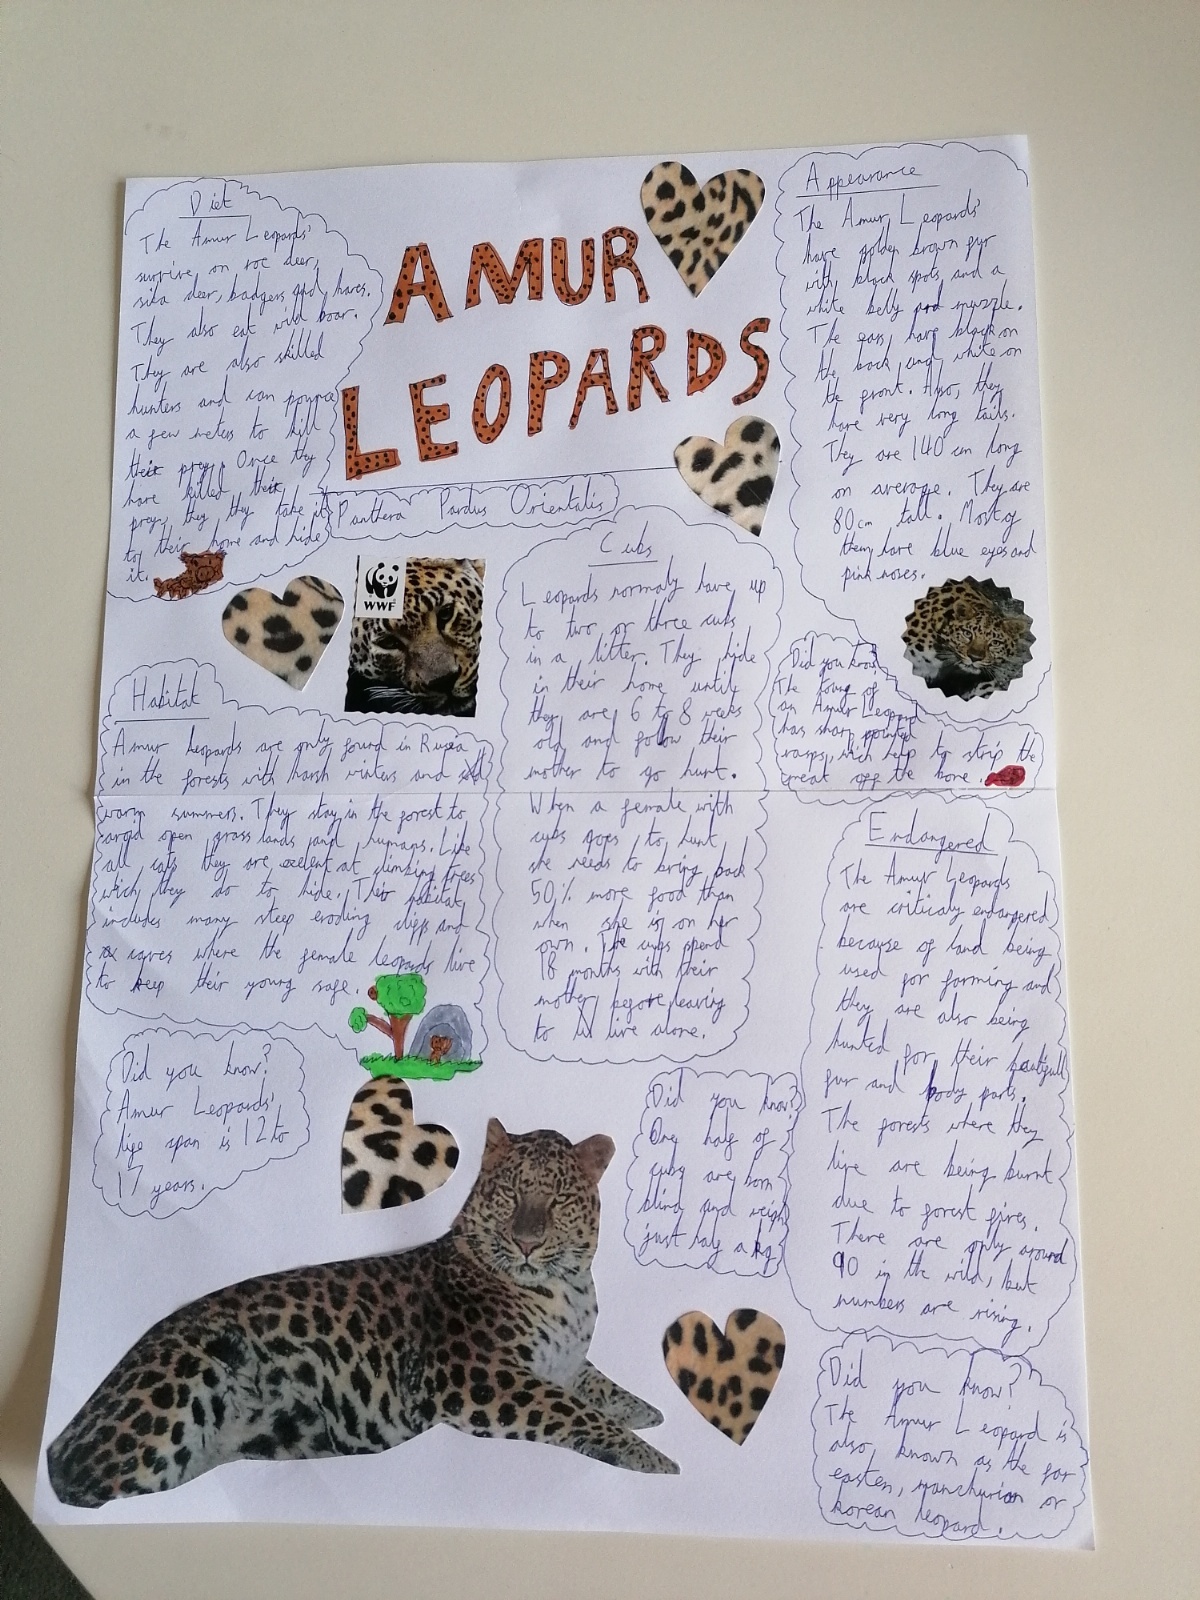 Diet
The Amur Leopards'
survive on roe deer,
sika deer, badgers and hares.
They also eat wild boar.
They are also skilled
hunters and can pounce
a few meters to kill
their prey. Once they
have killed their
prey, they they take it
to their home and hide
it.
AMUR
LEOPARDS
Panthera Pardus Orientalis
Appearance
The Amur Leopards'
have golden brown fur
with black spots and a
white belly and muzzle.
The ears have black on
the back and white on
the front. Also, they
have very long tails.
They are 140 cm long
on average. They are
80cm tall. Most of
them have blue eyes and
pink noses.
WWF
Cubs
Leopards normaly have up
to two or three cubs
in a litter. They hide
in their home until
they are 6 to 8 weeks
old and follow their
mother to go hunt.
When a female with
cubs goes to hunt
she needs to bring back
50% more food than
when she is on her
own. The cubs spend
18 months with their
mother before leaving
to live alone.
Did you know?
The toung of
an Amur Leopard
has sharp pointed
rasps, wich help to strip the
meat off the bone.
Habitat
Amur Leopards are only found in Rusia
in the forests with harsh winters and
warm summers. They stay in the forest to
avoid open grass lands and humans. Like
all cats they are excelent at climbing trees
which they do to hide. Their habitat
includes many steep eroding cliffs and
caves where the female leopards live
to keep their young safe.
Endangered
The Amur Leopards
are criticaly endangered
because of land being
used for farming and
they are also being
hunted for their beautifull
fur and body parts.
The forests where they
live are being burnt
due to forest fires.
There are only around
90 in the wild, but
numbers are rising.
Did you know?
Amur Leopards'
life span is 12 to
17 years.
Did you know?
One half of
cubs are born
blind and weigh
just half a kg
Did you know?
The Amur Leopard is
also known as the far
easten, manchurian or
korean leopard.